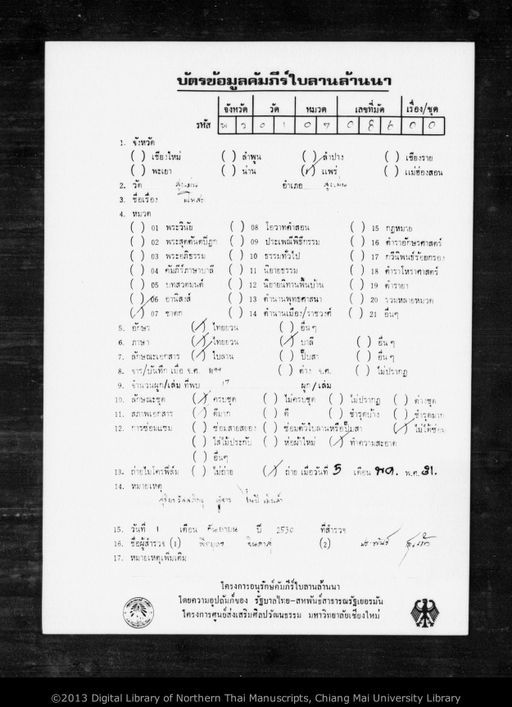 บัตรข้อมูลคัมภีร์ใบลานล้านนา
จังหวัด วัด หมวด เลขที่มัด เรื่อง/ชุด
รหัส พ ร 0 1 0 7 0 0 0
1. จังหวัด
( ) เชียงใหม่ ( ) ลำพูน ( ) ลำปาง ( ) เชียงราย
( ) พะเยา ( ) น่าน (/) แพร่ ( ) แม่ฮ่องสอน
2. วัด สูงเม่น อำเภอ สูงเม่น
3. ชื่อเรื่อง
4. หมวด
( ) 01 พระวินัย ( ) 08 โอวาทคำสอน ( ) 15 กฎหมาย
( ) 02 พระสุตตันตปิฎก ( ) 09 ประเพณีพิธีกรรม ( ) 16 ตำราอักษรศาสตร์
( ) 03 พระอภิธรรม ( ) 10 ธรรมทั่วไป ( ) 17 กวีนิพนธ์ร้อยกรอง
( ) 04 คัมภีร์ภาษาบาลี ( ) 11 นิยายธรรม ( ) 18 ตำราโหราศาสตร์
( ) 05 บทสวดมนต์ ( ) 12 นิยายนิทานพื้นบ้าน ( ) 19 ตำรายา
( ) 06 อานิสงส์ ( ) 13 ตำนานพุทธศาสนา ( ) 20 รวมหลายหมวด
(/) 07 ชาดก ( ) 14 ตำนานเมือง/ราชวงศ์ ( ) 21 อื่นๆ
5. อักษร (/) ไทยยวน ( ) อื่นๆ
6. ภาษา (/) ไทยยวน (/) บาลี ( ) อื่นๆ
7. ลักษณะเอกสาร (/) ใบลาน ( ) ปั๊บสา ( ) อื่นๆ
8. จาร/บันทึก เมื่อ จ.ศ. ( ) ต่าง จ.ศ. ( ) ไม่ปรากฏ
9. จำนวนผูก/เล่ม ที่พบ 17 ผูก/เล่ม
10. ลักษณะชุด (/) ครบชุด ( ) ไม่ครบชุด ( ) ไม่ปรากฏ ( ) ต่างชุด
11. สภาพเอกสาร (/) ดีมาก ( ) ดี ( ) ชำรุดบ้าง ( ) ชำรุดมาก
12. การซ่อมแซม ( ) ซ่อมสายสยอง ( ) ซ่อมตัวใบลานหรือปั๊บสา (/) ไม่ได้ซ่อม
( ) ใส่ไม้ประกับ ( ) ห่อผ้าใหม่ (/) ทำความสะอาด
( ) อื่นๆ
13. ถ่ายไมโครฟิล์ม ( ) ไม่ถ่าย (/) ถ่าย เมื่อวันที่ 5 เดือน พ.ย. พ.ศ. 31.
14. หมายเหตุ
15. วันที่ 1 เดือน กันยายน ปี 2530 ที่สำรวจ
16. ชื่อผู้สำรวจ (1) (2)
17. หมายเหตุเพิ่มเติม
โครงการอนุรักษ์คัมภีร์ใบลานล้านนา
โดยความอุปถัมภ์ของ รัฐบาลไทย-สหพันธ์สาธารณรัฐเยอรมัน
โครงการศูนย์ส่งเสริมศิลปวัฒนธรรม มหาวิทยาลัยเชียงใหม่
©2013 Digital Library of Northern Thai Manuscripts, Chiang Mai University Library